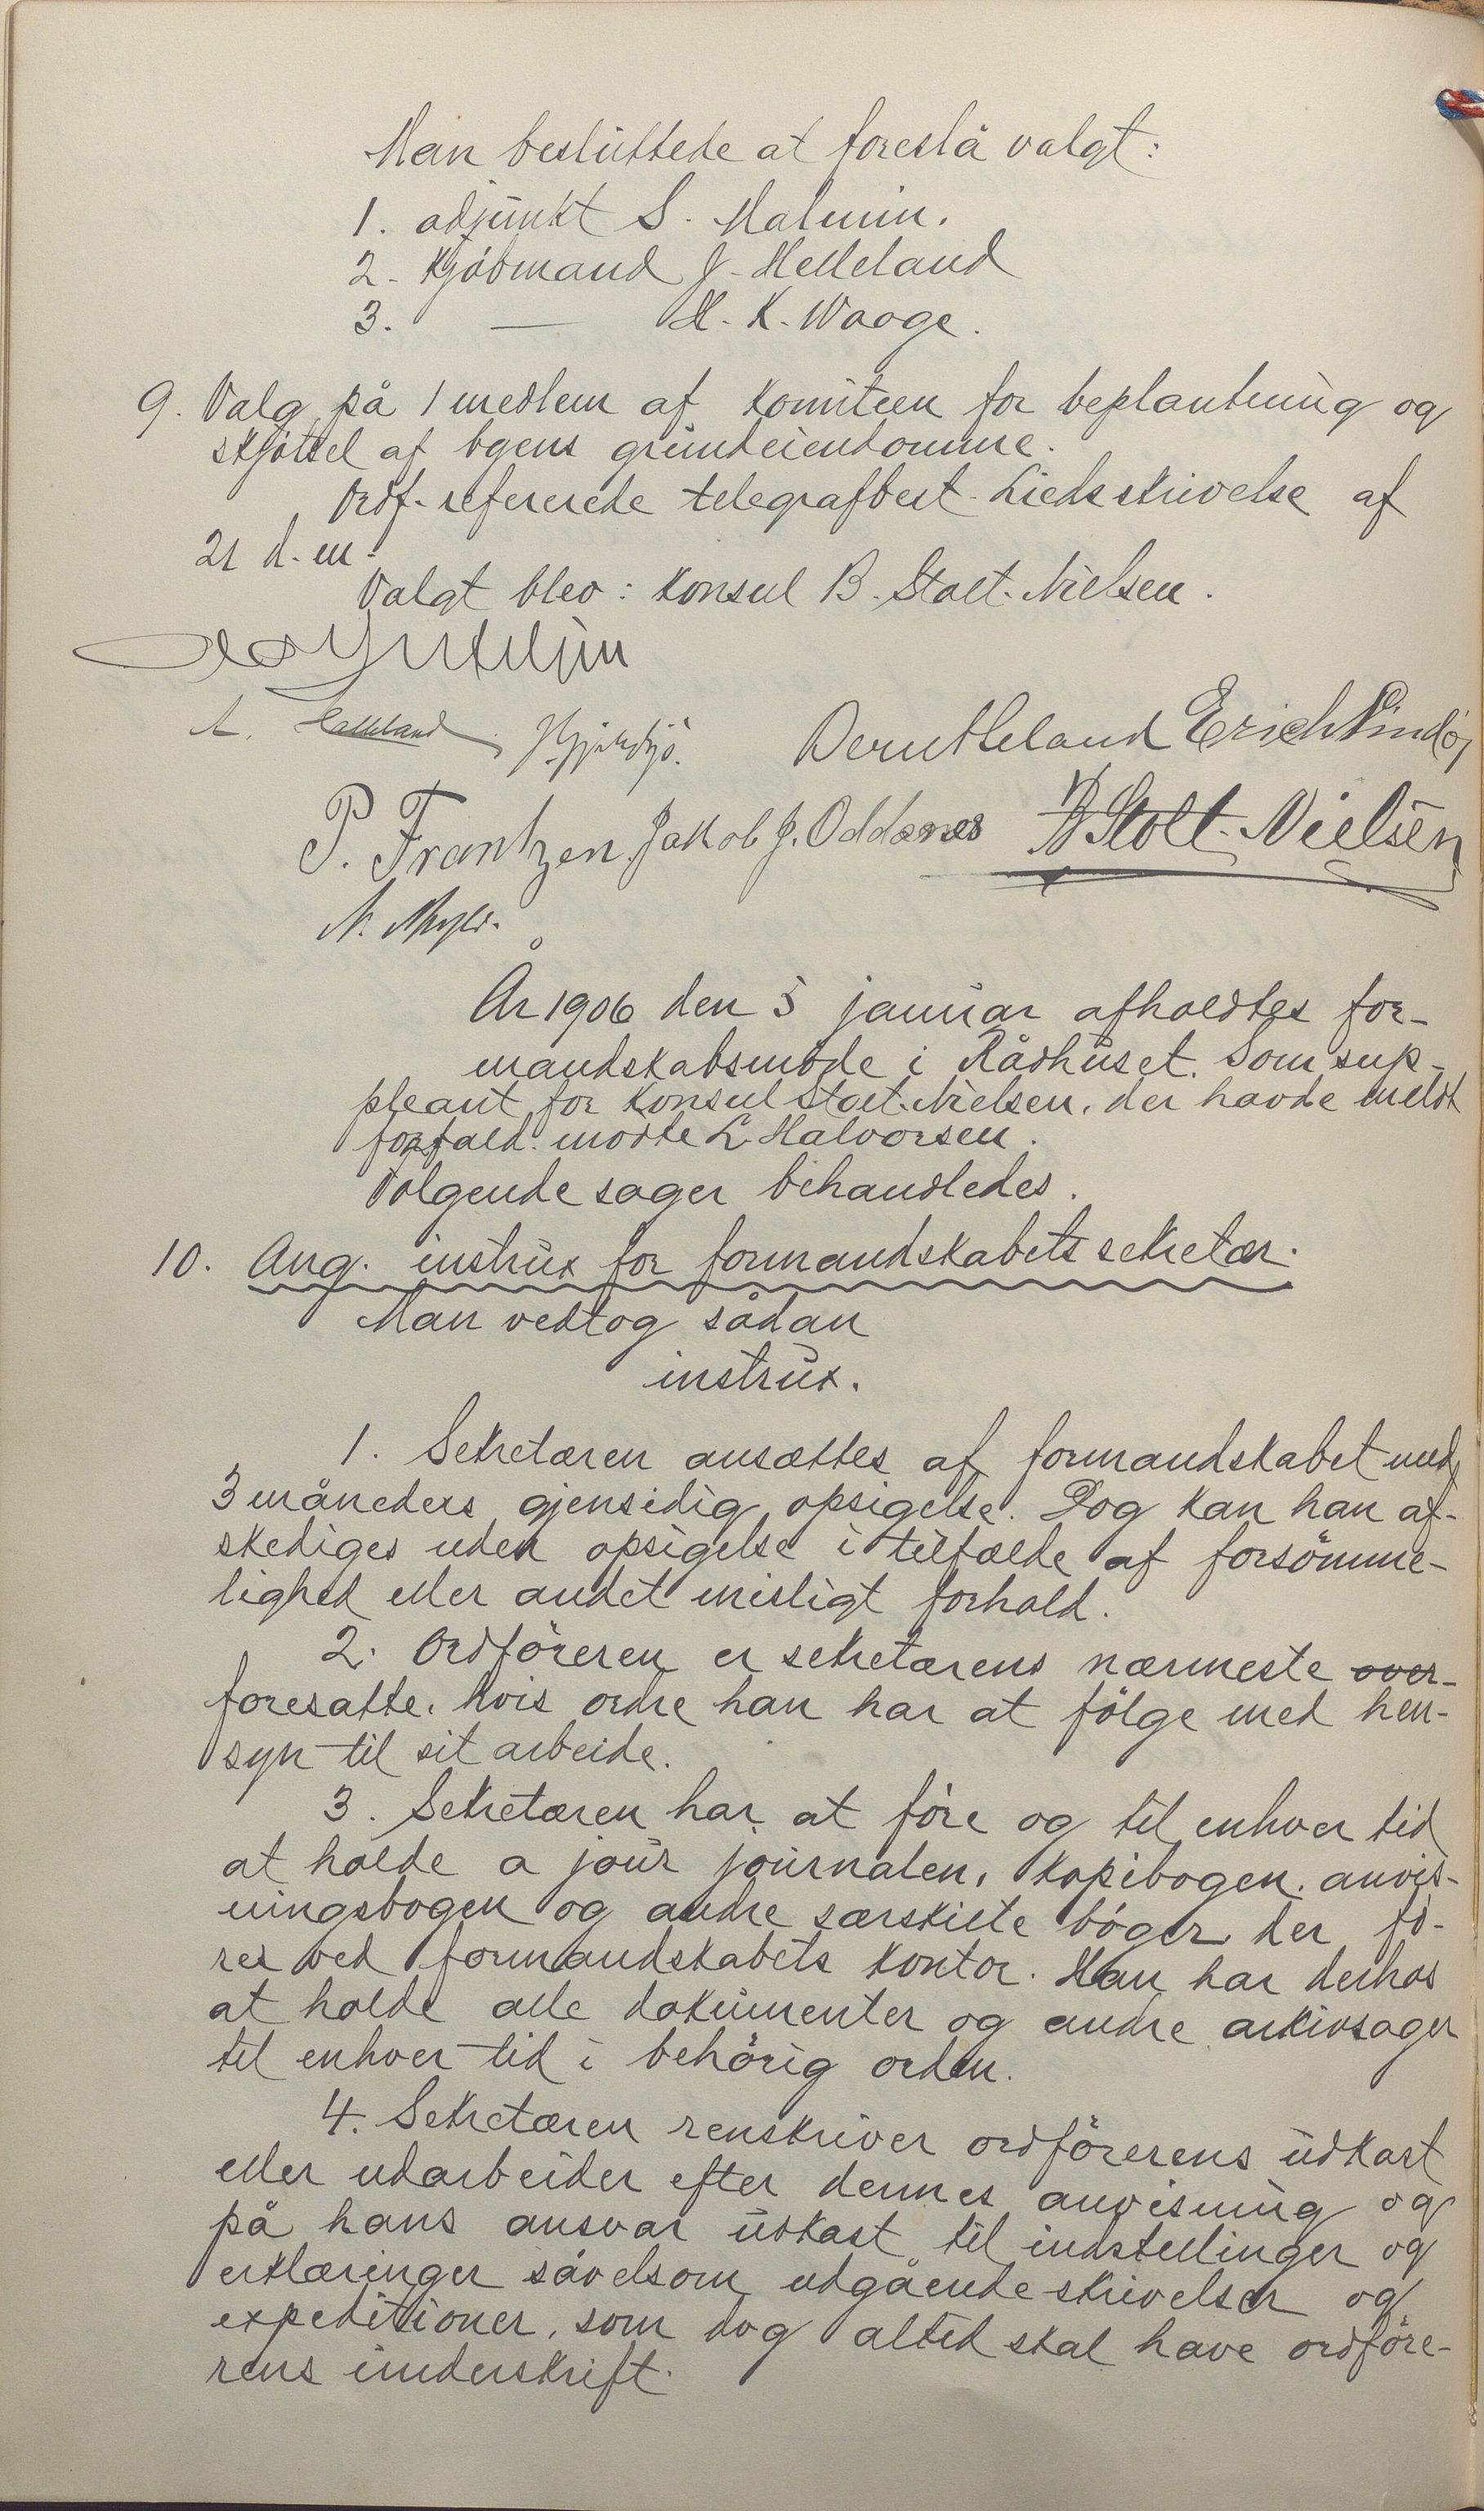 Man besluttede at foreslå valgt:
1. adjunkt S. Malmin.
2. Kjöbmand J. Helleland
3. — H. K. Waage.
9. Valg på 1 medlem af komiteen for beplantning og
skjötsel af byens grundeiendomme.
Ordf. refererede telegrafbest. Lieds skrivelse af
21 d. m.
Valgt blev: konsul B. Stolt-Nielsen.
A.
Bernt Heland Erich Lindöy
P. Frantzen Jakob J. Oddsnes B Stolt-Nielsen
N.
År 1906 den 5 januar afholdtes for-
mandskabsmöde i Rådhuset. Som sup-
pleant for konsul Stolt-Nielsen, der havde meldt
forfald. mödte L. Halvorsen.
Fölgende sager behandledes.
10. Ang. instrux for formandskabets sekretær.
Man vedtog sådan
instrux.
1. Sekretæren ansættes af formandskabet med
3 måneders gjensidig opsigelse. Dog kan han af-
skediges uden opsigelse i tilfælde af forsömme-
lighed eller andet misligt forhold.
2. Ordföreren er sekretærens nærmeste over-
foresatte, hvis ordre han har at fölge med hen-
syn til sit arbeide.
3. Sekretæren har at före og til enhver tid
at holde a jour journalen, kopibogen, anvis-
ningsbogen og andre særskilte böger, der fö-
res ved formandskabets kontor. Han har derhos
at holde alle dokumenter og andre arkivsager
til enhver tid i behörig orden.
4. Sekretæren renskriver ordförerens udkast
eller udarbeider efter dennes anvisning og
på hans ansvar udkast til indstillinger og
erklæringer såvelsom udgående skrivelser og
expeditioner, som dog altid skal have ordföre-
rens underskrift.